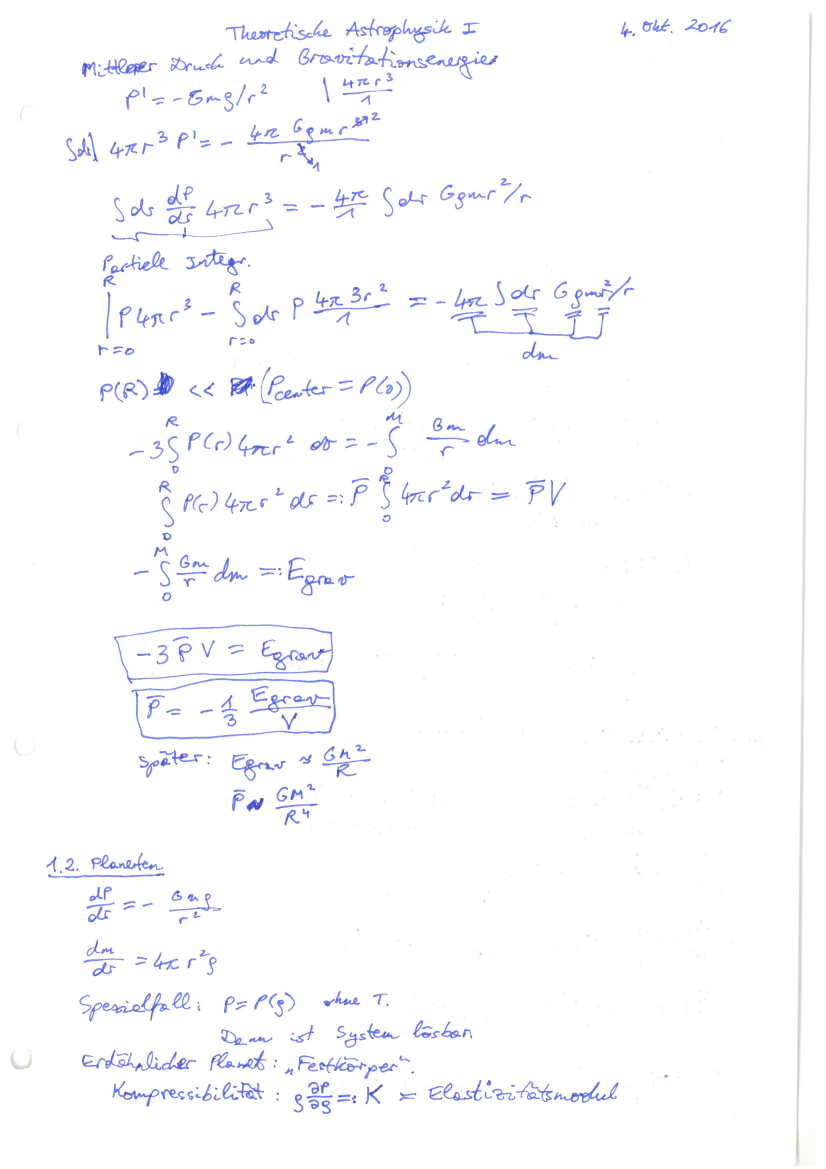 Theoretische Astrophysik I 4. Okt. 2016
Mittlerer Druck und Gravitationsenergie
P' = -Gmρ/r² | 4πr³/1
∫dr] 4πr³ P' = - 4π Gρmr³/r²
∫dr dP/dr 4πr³ = - 4π/1 ∫dr Gρmr²/r
Partiele Integr.
|_{r=0}^{R} P4πr³ - ∫_{r=0}^{R} dr P 4π3r²/1 = -4π ∫dr Gρmr²/r
dm
P(R) << (Pcenter = P(0))
-3∫_0^R P(r)4πr² dr = -∫_0^M Gm/r dm
∫_0^R P(r)4πr² dr =: P̄ ∫_0^R 4πr²dr = P̄V
-∫_0^M Gm/r dm =: Egrav
-3 P̄ V = Egrav
P̄ = - 1/3 Egrav/V
Später: Egrav ≈ GM²/R
P̄ ~ GM²/R⁴
1.2. Planeten
dP/dr = - Gmρ/r²
dm/dr = 4π r²ρ
Spezialfall: P=P(ρ) ohne T.
Dann ist System lösbar
Erdähnlicher Planet: „Festkörper".
Kompressibilität: ρ ∂P/∂ρ =: K = Elastizitätsmodul